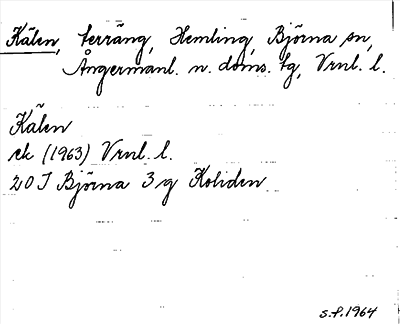 Kälen, terräng, Hemling, Björna sn,
Ångermanl. n. doms. tg, Vrnl. l.
Kälen
ek (1963) Vrnl. l.
20 I Björna 3 g Koliden
s.f. 1964